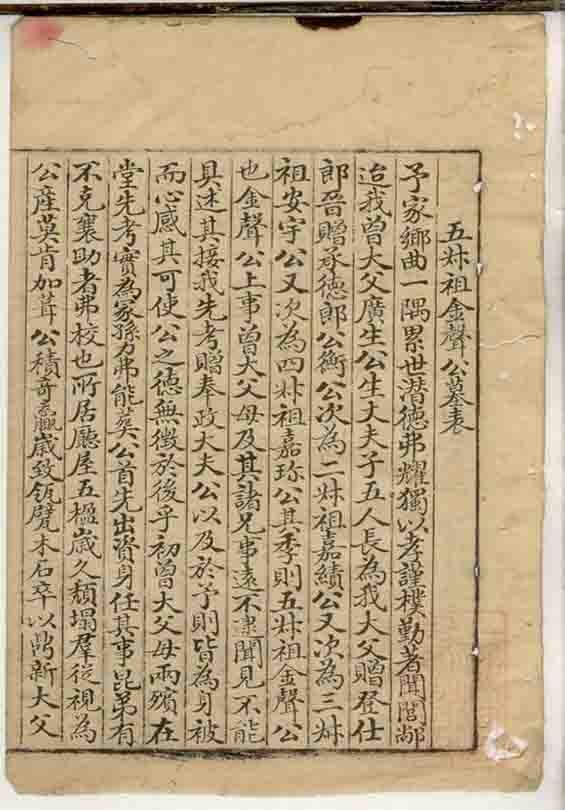 五叔祖金聲公墓表
予家鄉曲一隅累世潛德弗耀獨以孝謹樸勤著聞閭鄰
迨我曾大父廣生公生丈夫子五人長為我大父贈登仕
郎晉贈承德郎公衡公次為二叔祖嘉績公又次為三叔
祖安宇公又次為四叔祖嘉珍公其季則五叔祖金聲公
也金聲公上事曾大父母及其諸兄事遠不逮聞見不能
具述其接我先考贈奉政大夫公以及於予則皆為身被
而心感其可使公之德無徵於後乎初曾大父母兩殯在
堂先考實為冢孫力弗能葬公首先出資身任其事昆弟有
不克襄助者弗校也所居廳屋五楹歲久頹塌羣從視為
公產莫肯加葺公積奇羸歲致瓴甓木石卒以鼎新大父